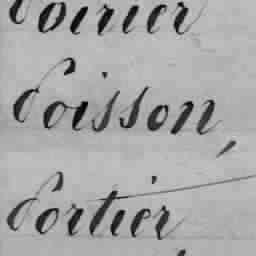 Poirier
Poisson,
Portier,